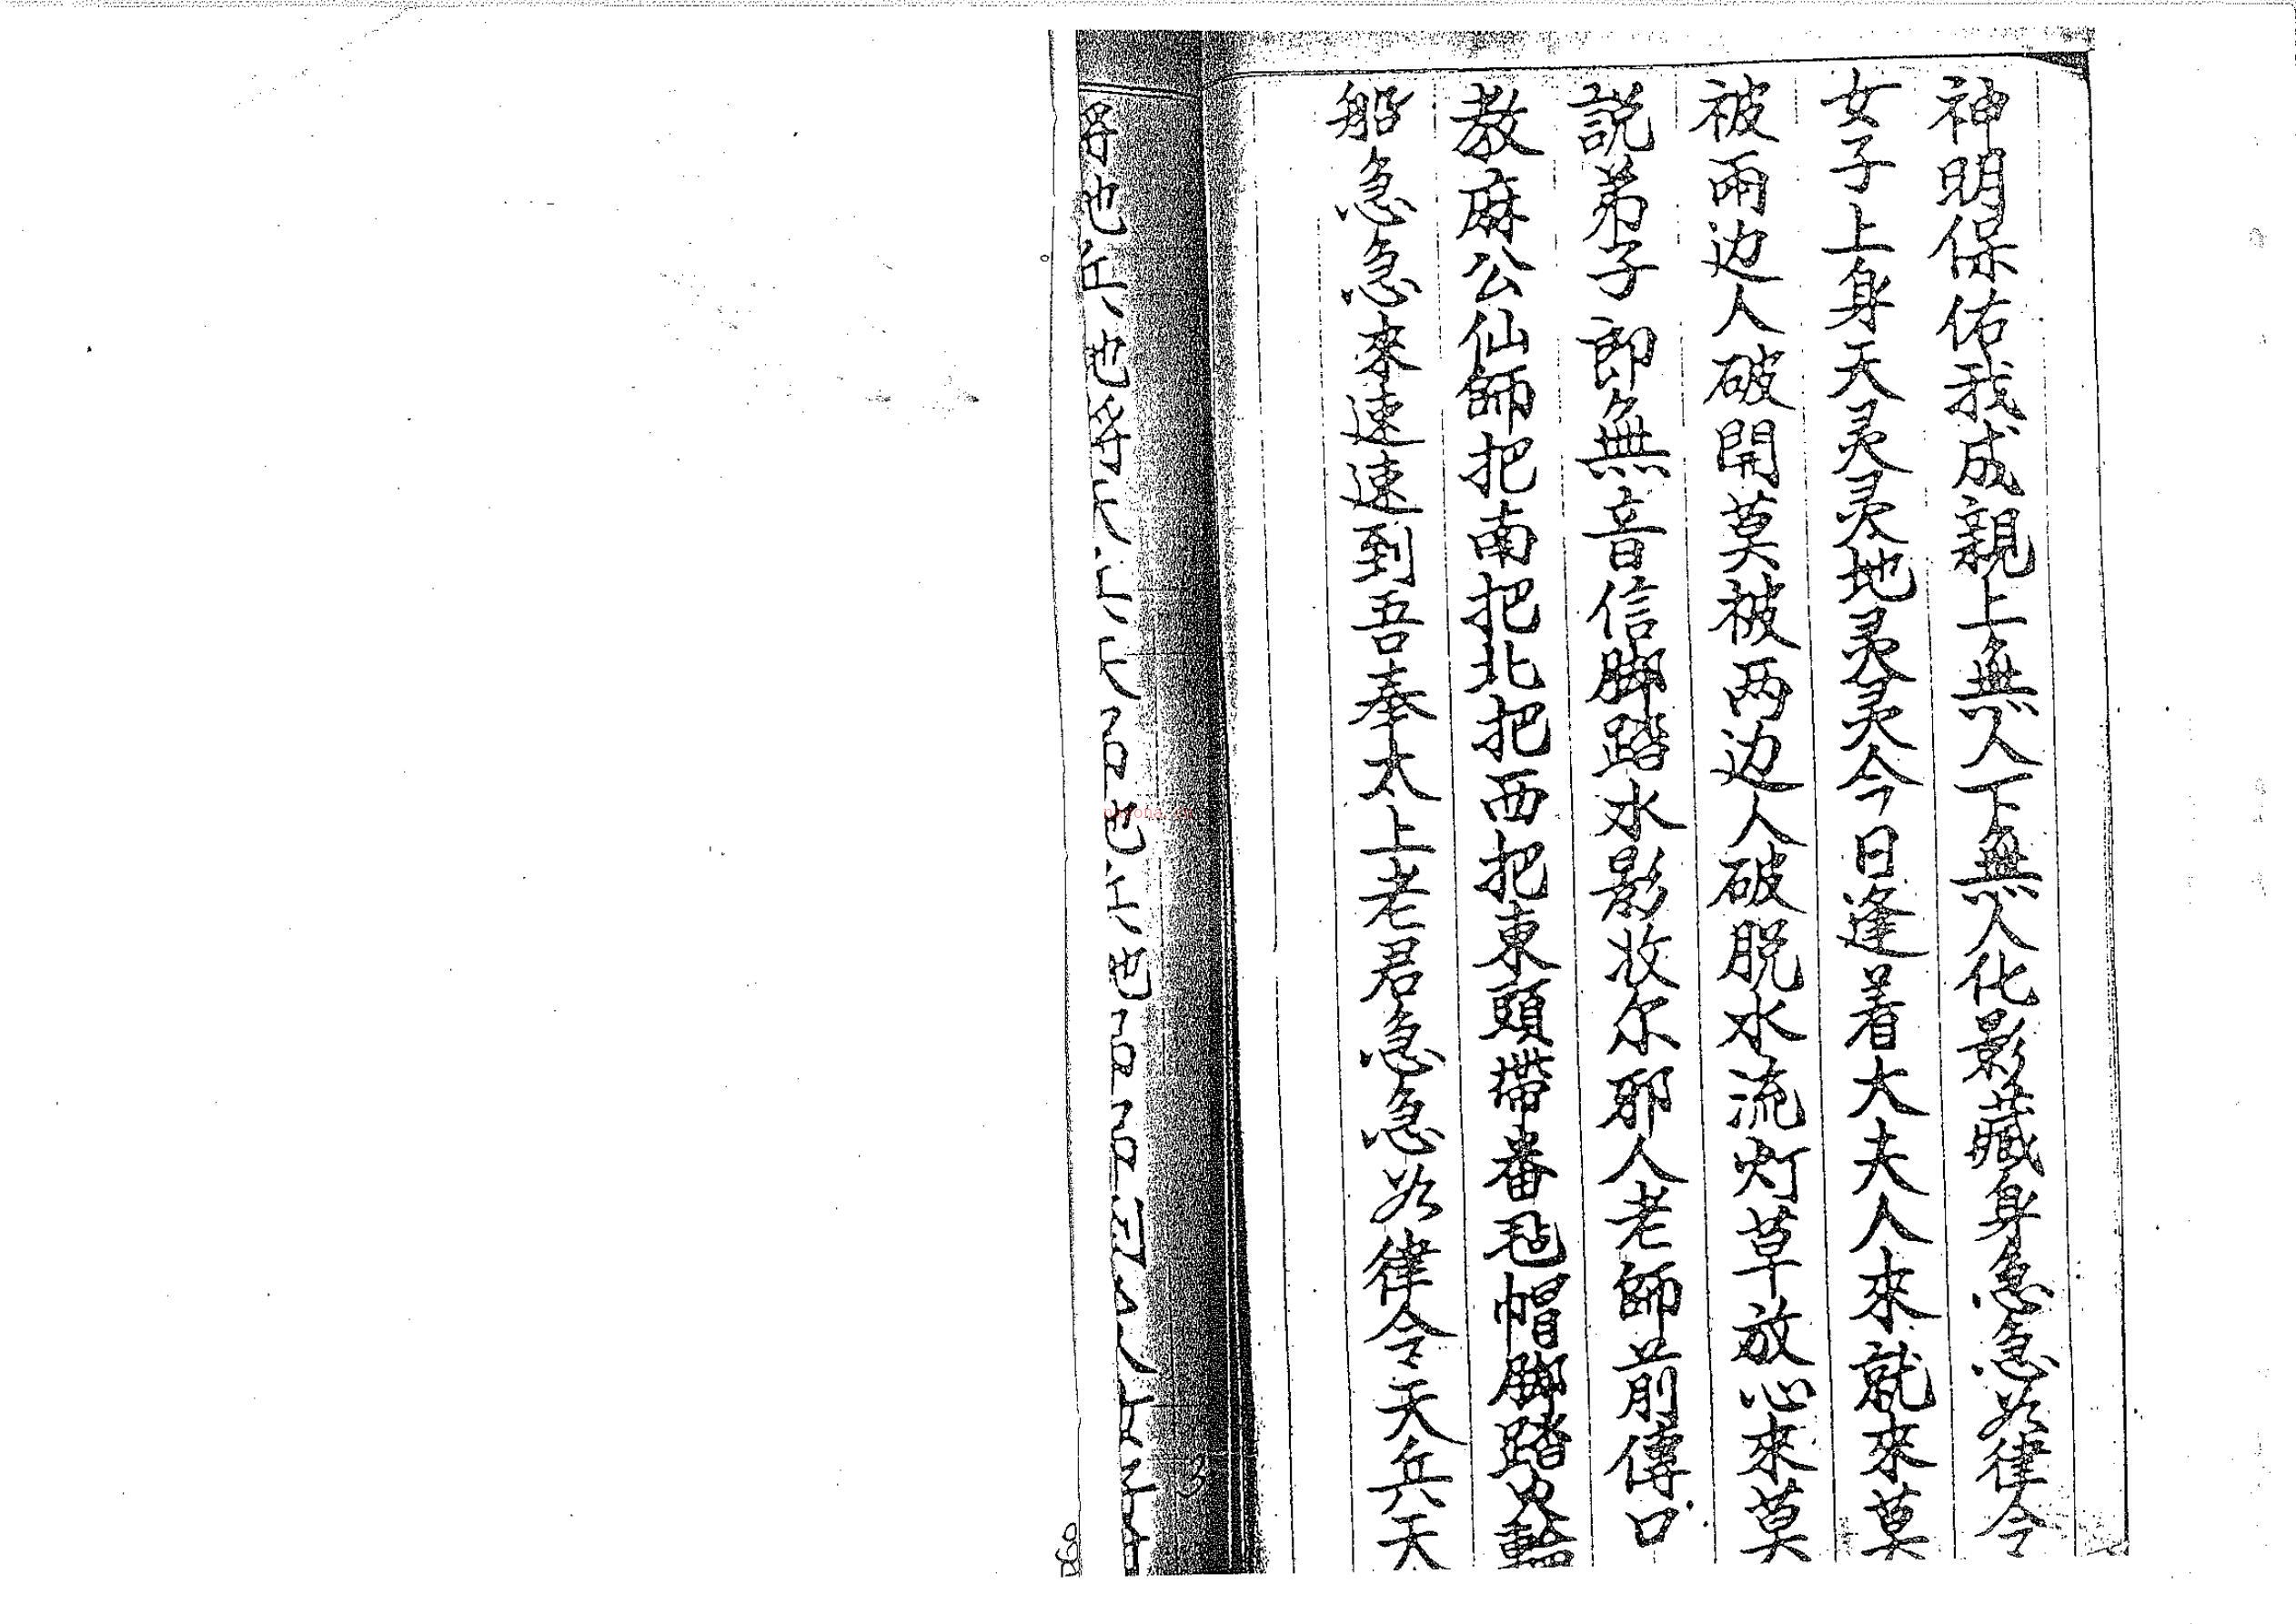 神明保佑我成親上無人下無人化影藏身急急如律令
女子上身天灵灵地灵灵今日逢着大夫人來就來莫
被雨边人破開莫被两边人破脱水流灯草放心來莫
説弟子郎無音信脚踏水影妆尔邪人老師前傳口
教麻公仙師把南把北把西把東頭帶番毡帽脚踏火輪
船急急來速速到吾奉太上老君急急如律令天兵天
3